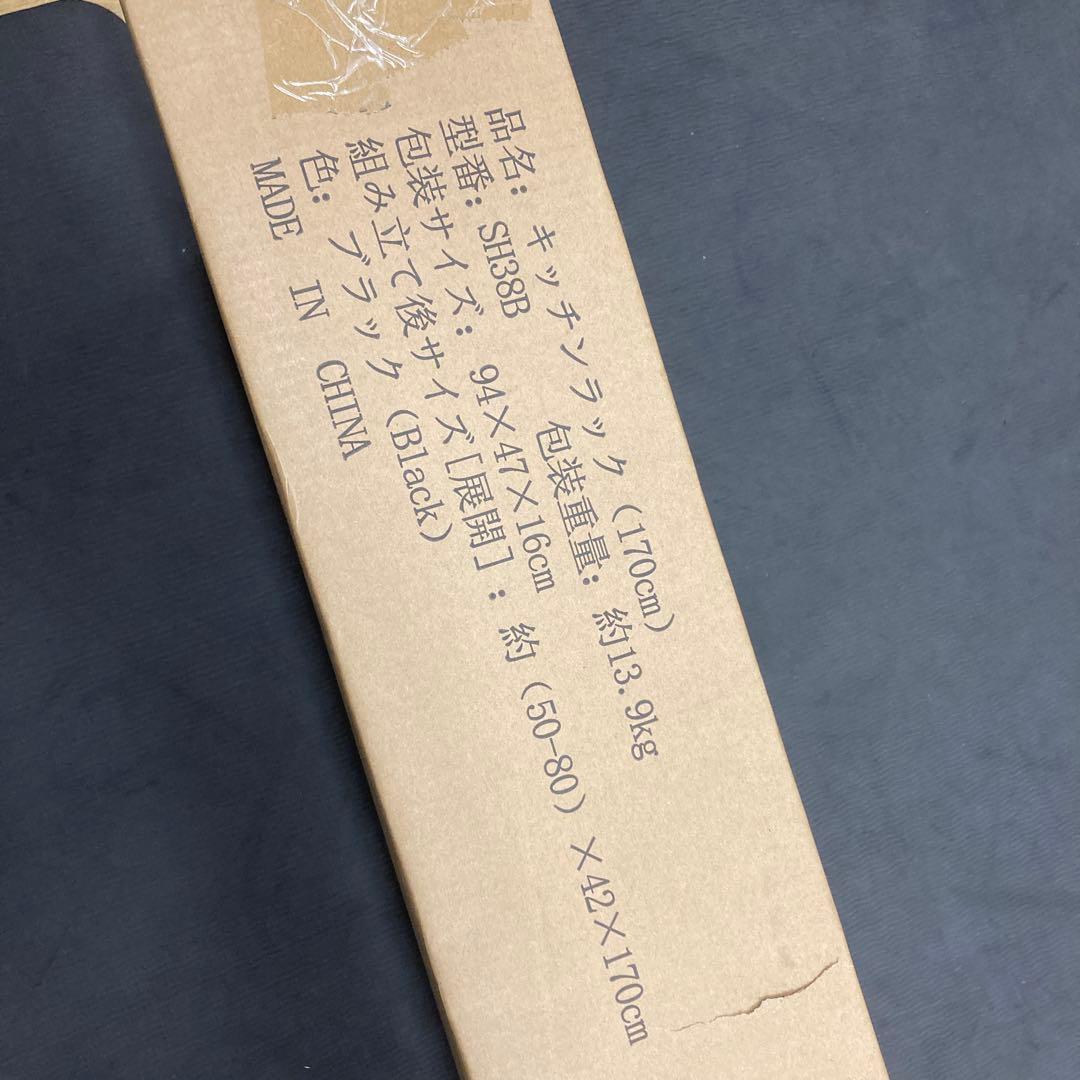 品名: キッチンラック (170cm)
型番: SH38B 包装重量: 約13.9kg
包装サイズ: 94×47×16cm
組み立て後サイズ[展開]: 約(50-80)×42×170cm
色: ブラック(Black)
MADE IN CHINA